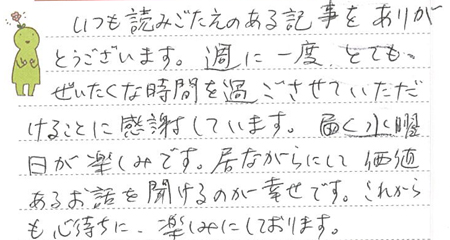 いつも読みごたえのある記事をありが
とうございます。週に一度、とても
ぜいたくな時間を過ごさせていただ
けることに感謝しています。届く水曜
日が楽しみです。居ながらにして価値
あるお話を聞けるのが幸せです。これから
も心待ちに、楽しみにしております。